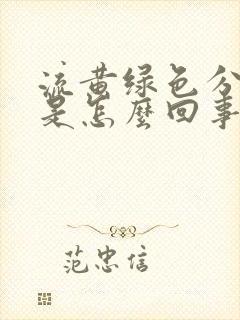 流黄绿色分
是怎麽回事
范忠信